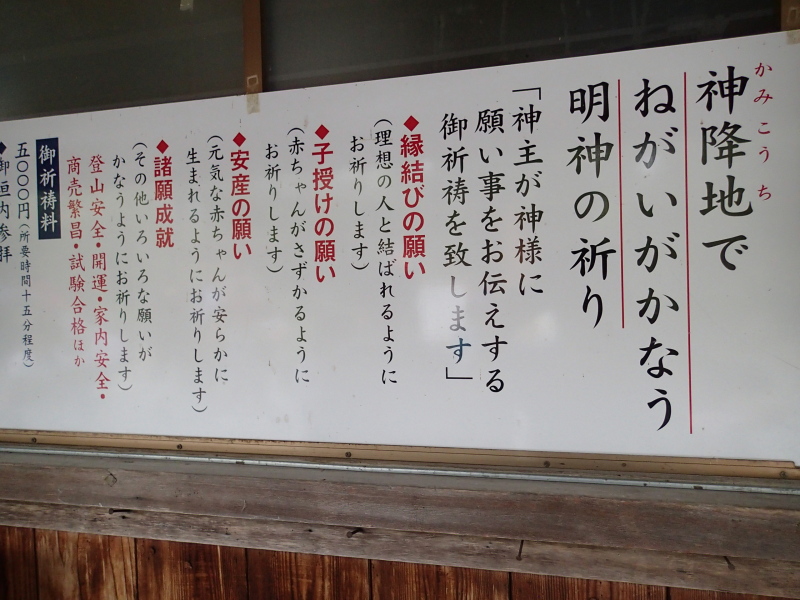 かみこうち
神降地で
ねがいがかなう
明神の祈り
「神主が神様に
願い事をお伝えする
御祈祷を致します」
◆縁結びの願い
(理想の人と結ばれるように
お祈りします)
◆子授けの願い
(赤ちゃんがさずかるように
お祈りします)
◆安産の願い
(元気な赤ちゃんが安らかに
生まれるようにお祈りします)
◆諸願成就
(その他いろいろな願いが
かなうようにお祈りします)
登山安全・開運・家内安全・
商売繁昌・試験合格ほか
御祈祷料
五〇〇〇円(所要時間十五分程度)
◆御垣内参拝